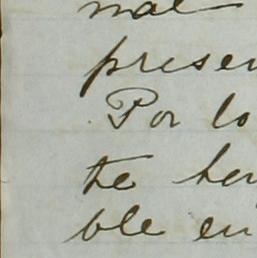 nal
presen
Por lo
te ten
ble en